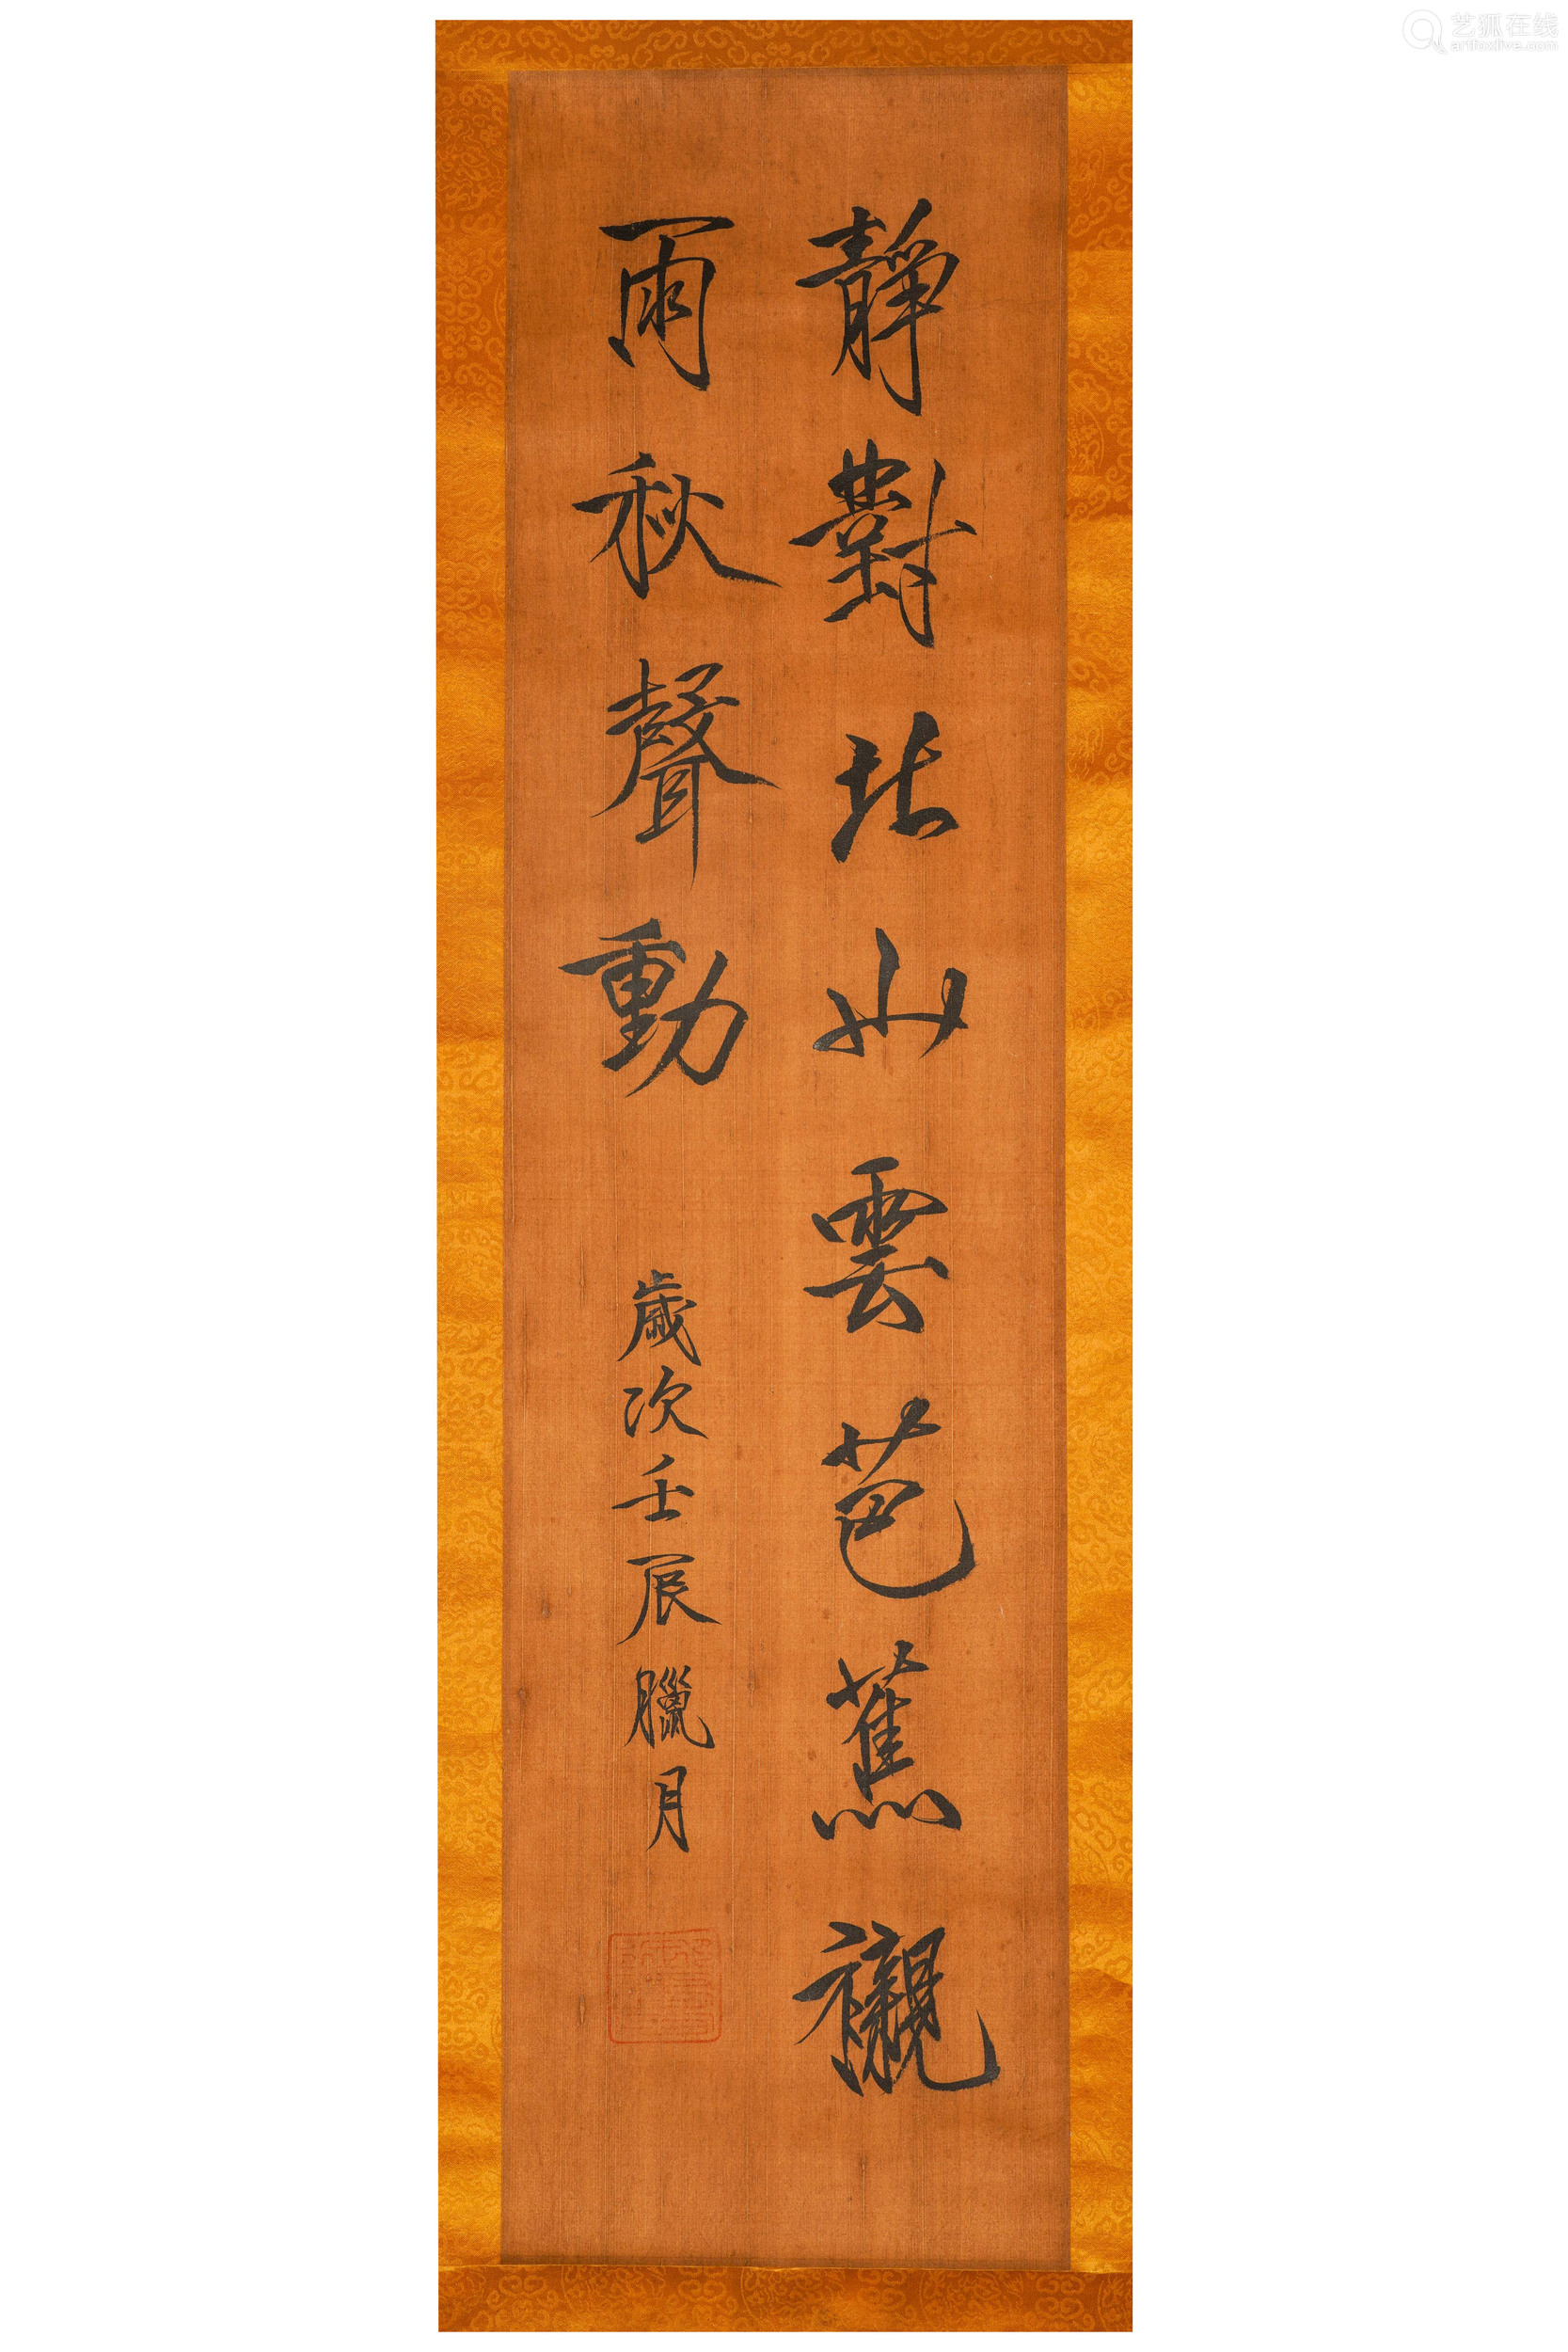 靜對北山雲芭蕉襯
雨秋聲動
歲次壬辰臘月
艺狐在线
artfoxlive.com